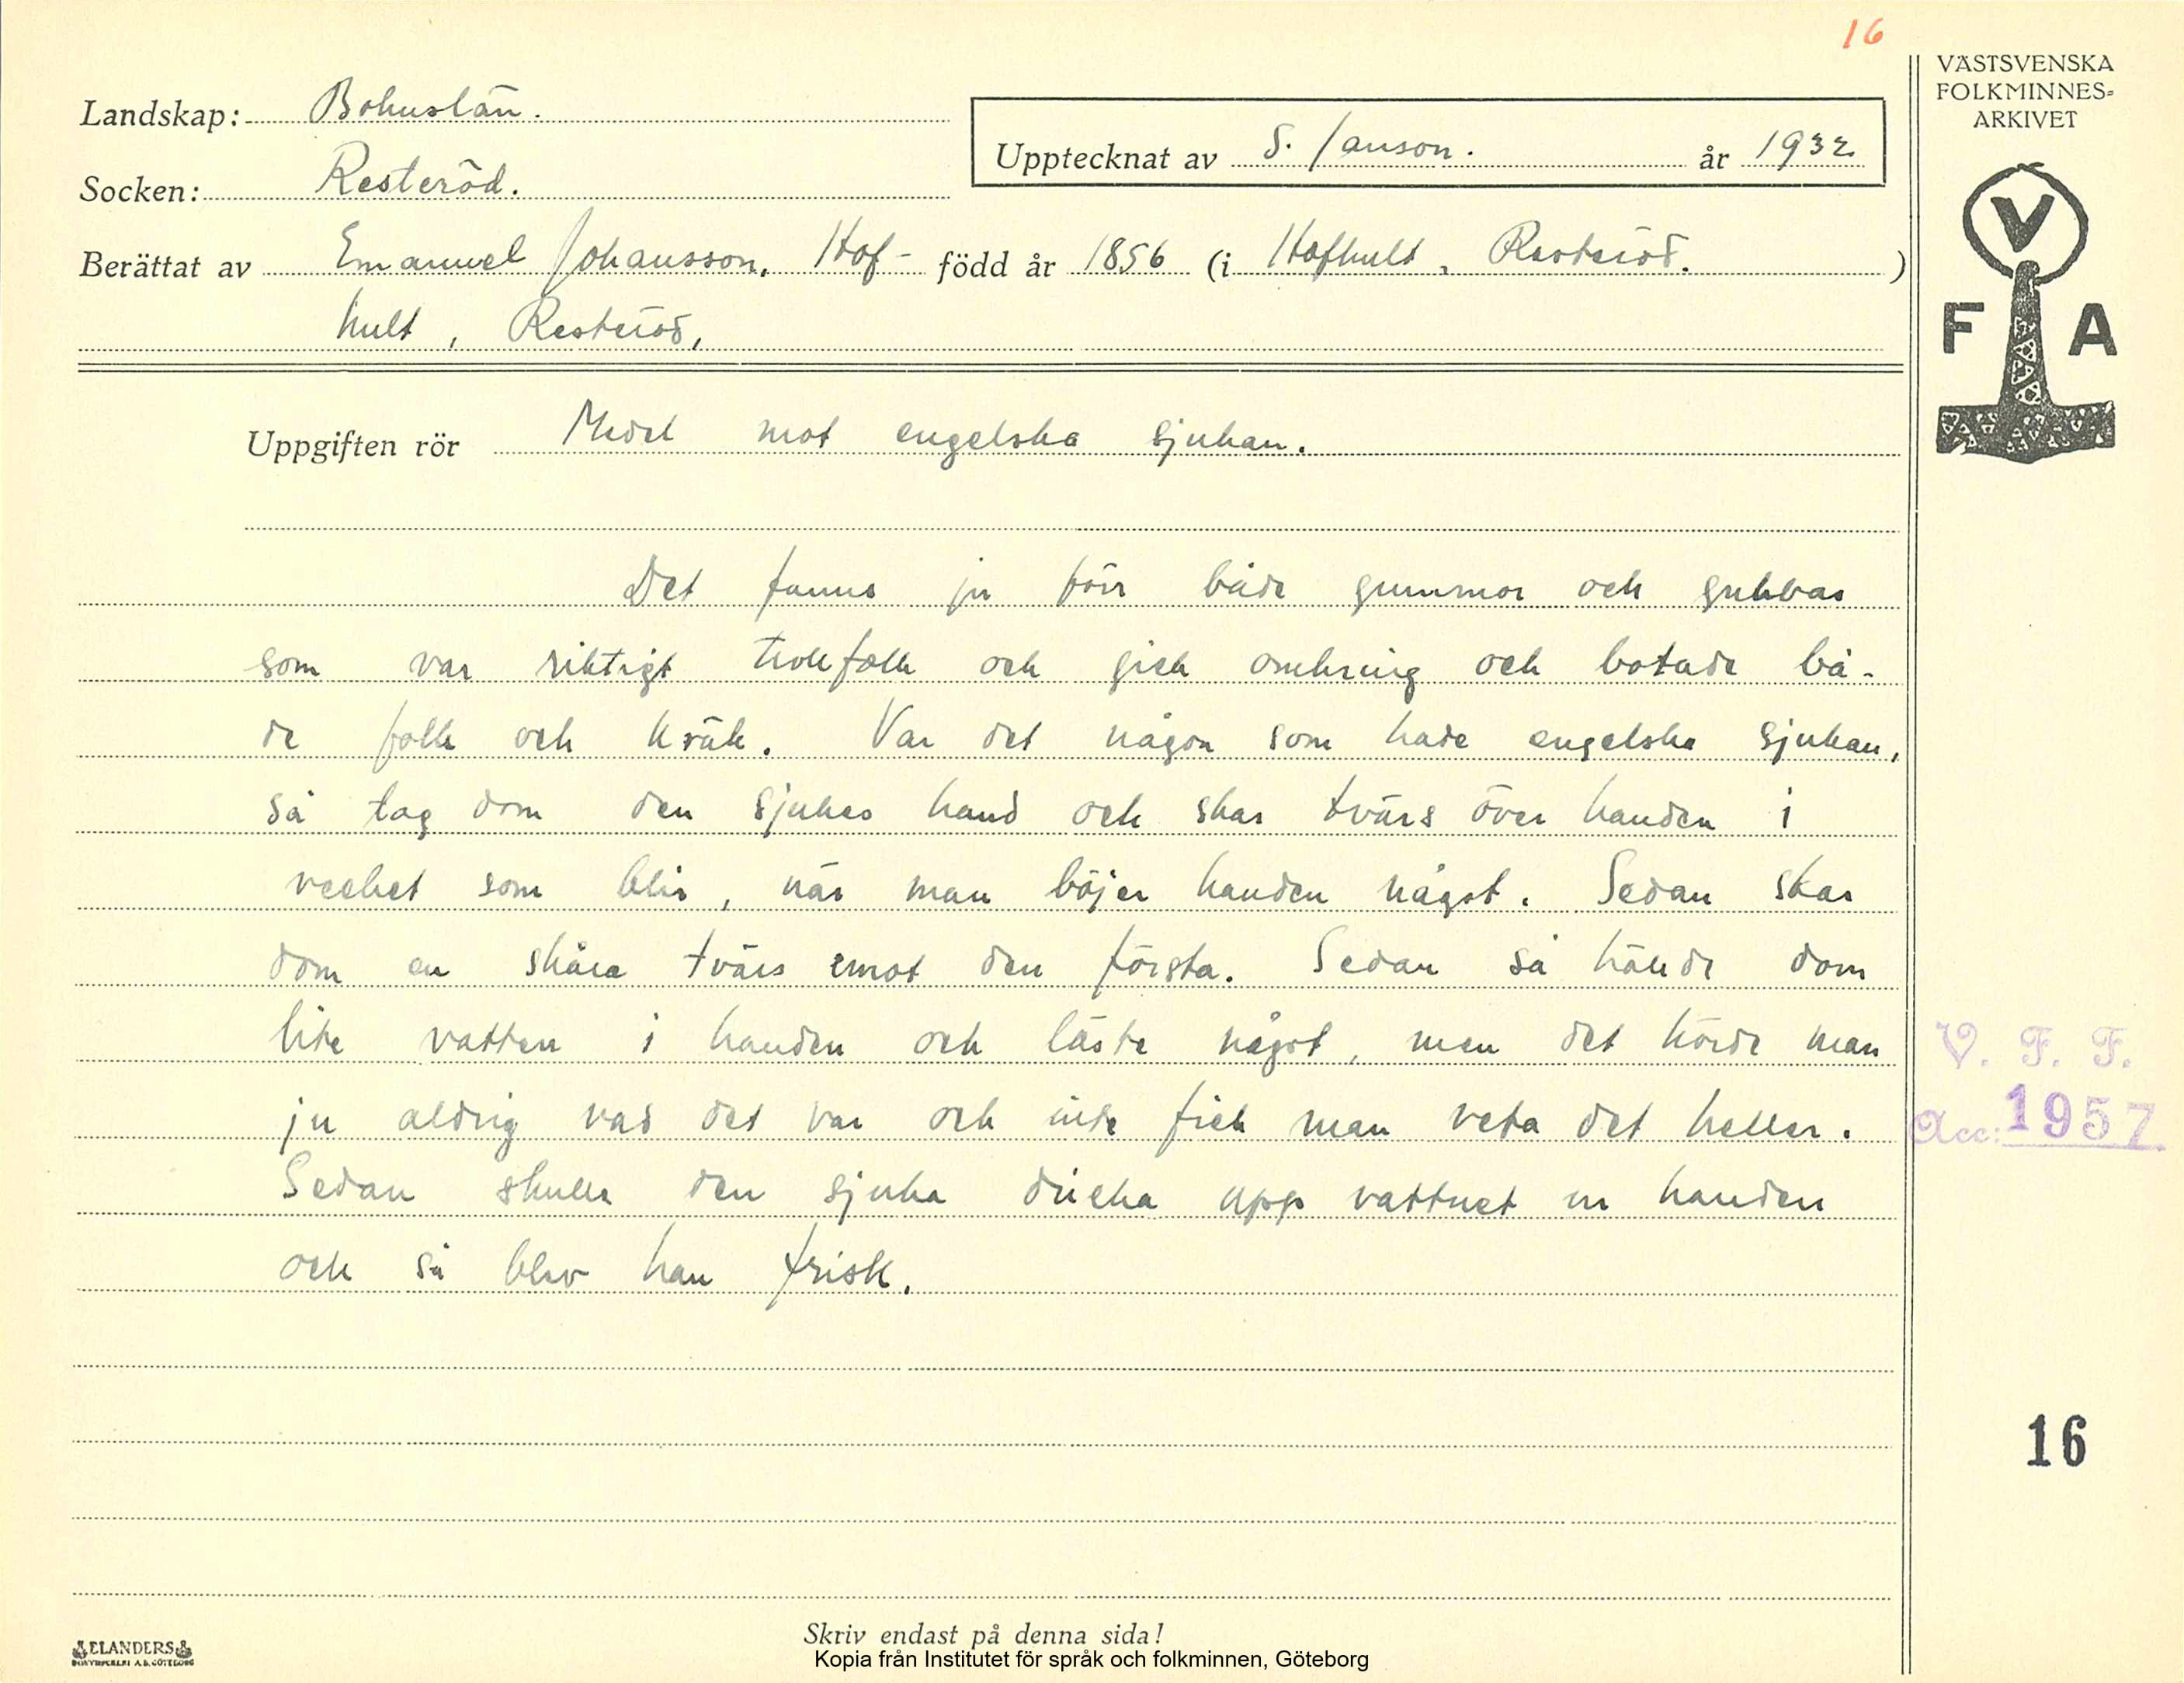 16
VÄSTSVENSKA
FOLKMINNES-
ARKIVET
Landskap: Bohuslän.
Upptecknat av S. Janson. år 1932
Socken: Resteröd.
Berättat av Emanuel Johansson, Hof- född år 1856 (i Hofhult, Resteröd.)
hult, Resteröd,
V
F A
Uppgiften rör Medel mot engelska sjukan.
Det fanns ju förr både gummor och gubbar
som var riktigt trollfolk och gick omkring och botade bå-
de folk och kräk. Var det någon som hade engelska sjukan,
så tog dom den sjukes hand och skar tvärs över handen i
vecket som blir, när man böjer handen något. Sedan skar
dom en skåra tvärs emot den första. Sedan så hällde dom
lite vatten i handen och läste något, men det hörde man
ju aldrig vad det var och inte fick man veta det heller.
Sedan skulle den sjuka dricka upp vattnet ur handen
och så blev han frisk.
V. F. F.
Acc: 1957
16
Skriv endast på denna sida!
ELANDERS
BOKTRYCKERI A.B. GÖTEBORG
Kopia från Institutet för språk och folkminnen, Göteborg